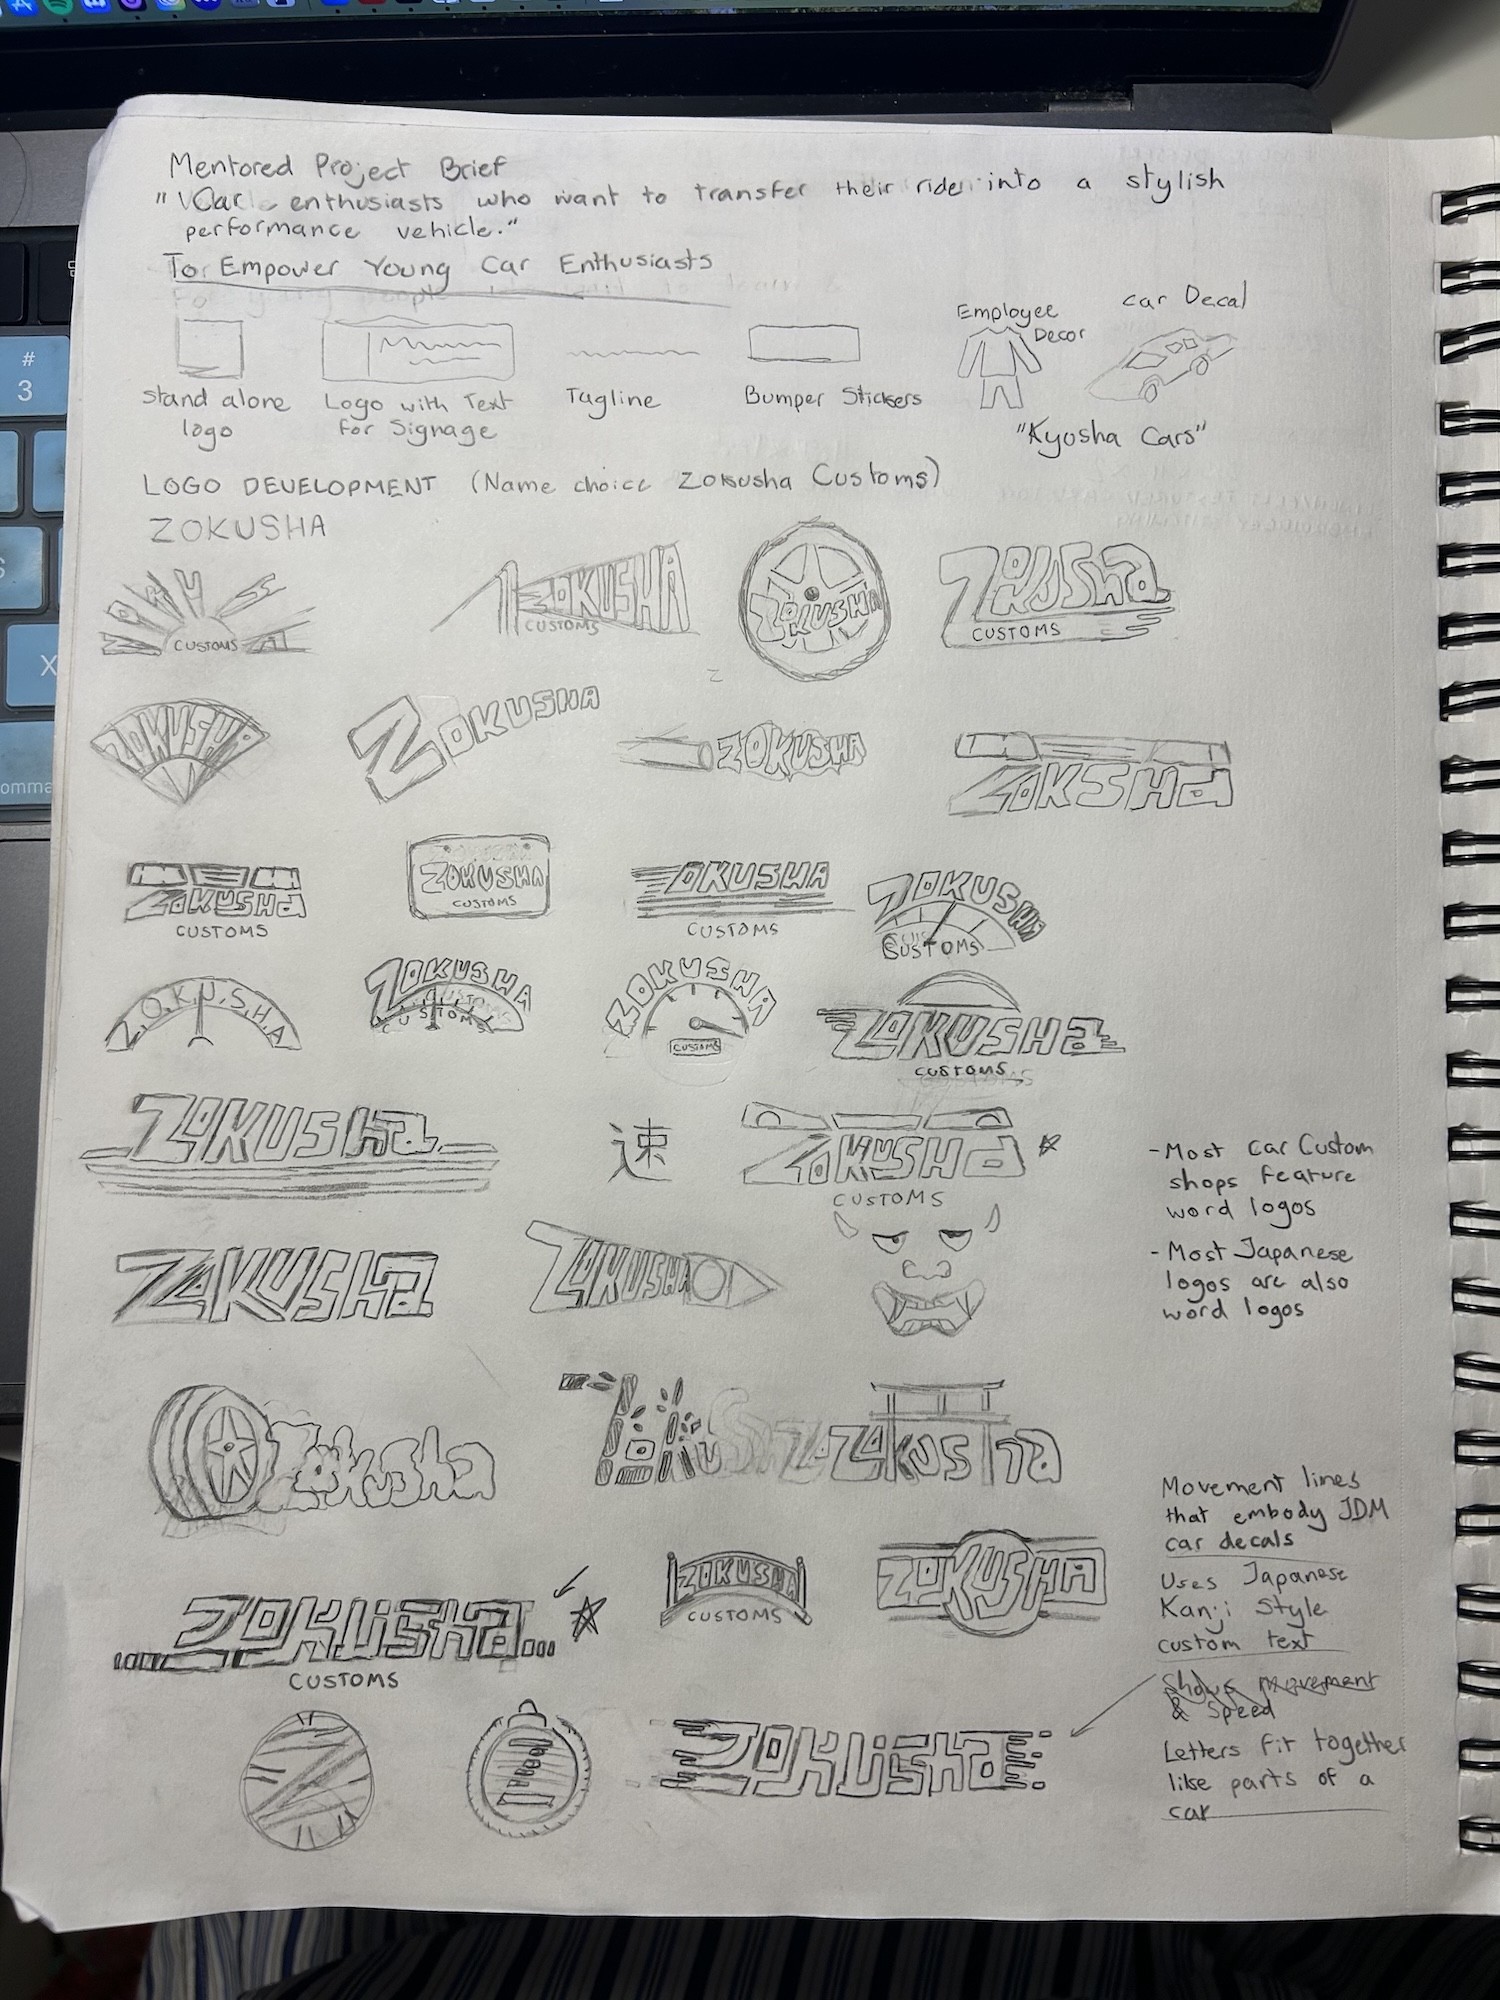 Mentored Project Brief
"Car enthusiasts who want to transfer their ride into a stylish
performance vehicle."
To Empower Young Car Enthusiasts
Employee
Decor
car Decal
stand alone
logo
Logo with Text
for Signage
Tagline
Bumper Stickers
"Kyusha Cars"
LOGO DEVELOPMENT (Name choice Zokusha Customs)
ZOKUSHA
ZOKUSHA
CUSTOMS
ZOKUSHA
CUSTOMS
ZOKUSHA
ZOKUSHa
CUSTOMS
ZOKUSHA
ZOKUSHA
ZOKUSHA
ZOKSHa
ZOKUSHa
CUSTOMS
ZOKUSHA
CUSTOMS
ZOKUSHA
CUSTOMS
ZOKUSHA
CUSTOMS
Z.O.K.U.S.H.A
ZOKUSHA
CUSTOMS
ZOKUSHA
CUSTOMS
ZOKUSHa
CUSTOMS
ZOKUSHa
速
ZOKUSHa
CUSTOMS
- Most car Custom
shops feature
word logos
- Most Japanese
logos are also
word logos
ZOKUSHa
ZOKUSHA
Zokusha
ZOKUSha
Movement lines
that embody JDM
car decals
Uses Japanese
Kanji Style
custom text
Shows movement
& Speed
Letters fit together
like parts of a
car
ZOKUSHa
CUSTOMS
ZOKUSHA
CUSTOMS
ZOKUSHA
Z
Z
ZOKUSHa
#
3
X